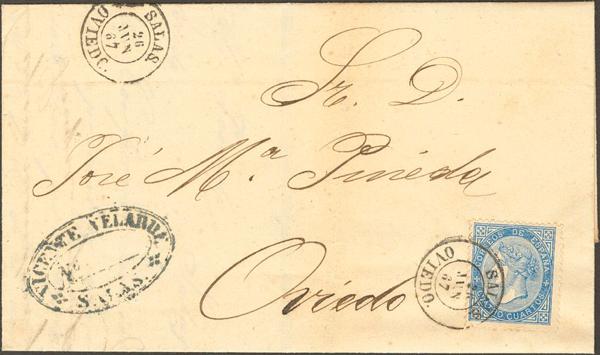 SALAS
26
JUN
67
OVIEDO.
Sr. D.
José M.ª Pineda
VICENTE VELARDE
SALAS
Oviedo
SALAS
JUN
67
OVIEDO
CORREOS DE ESPAÑA
CUATRO CUARTOS